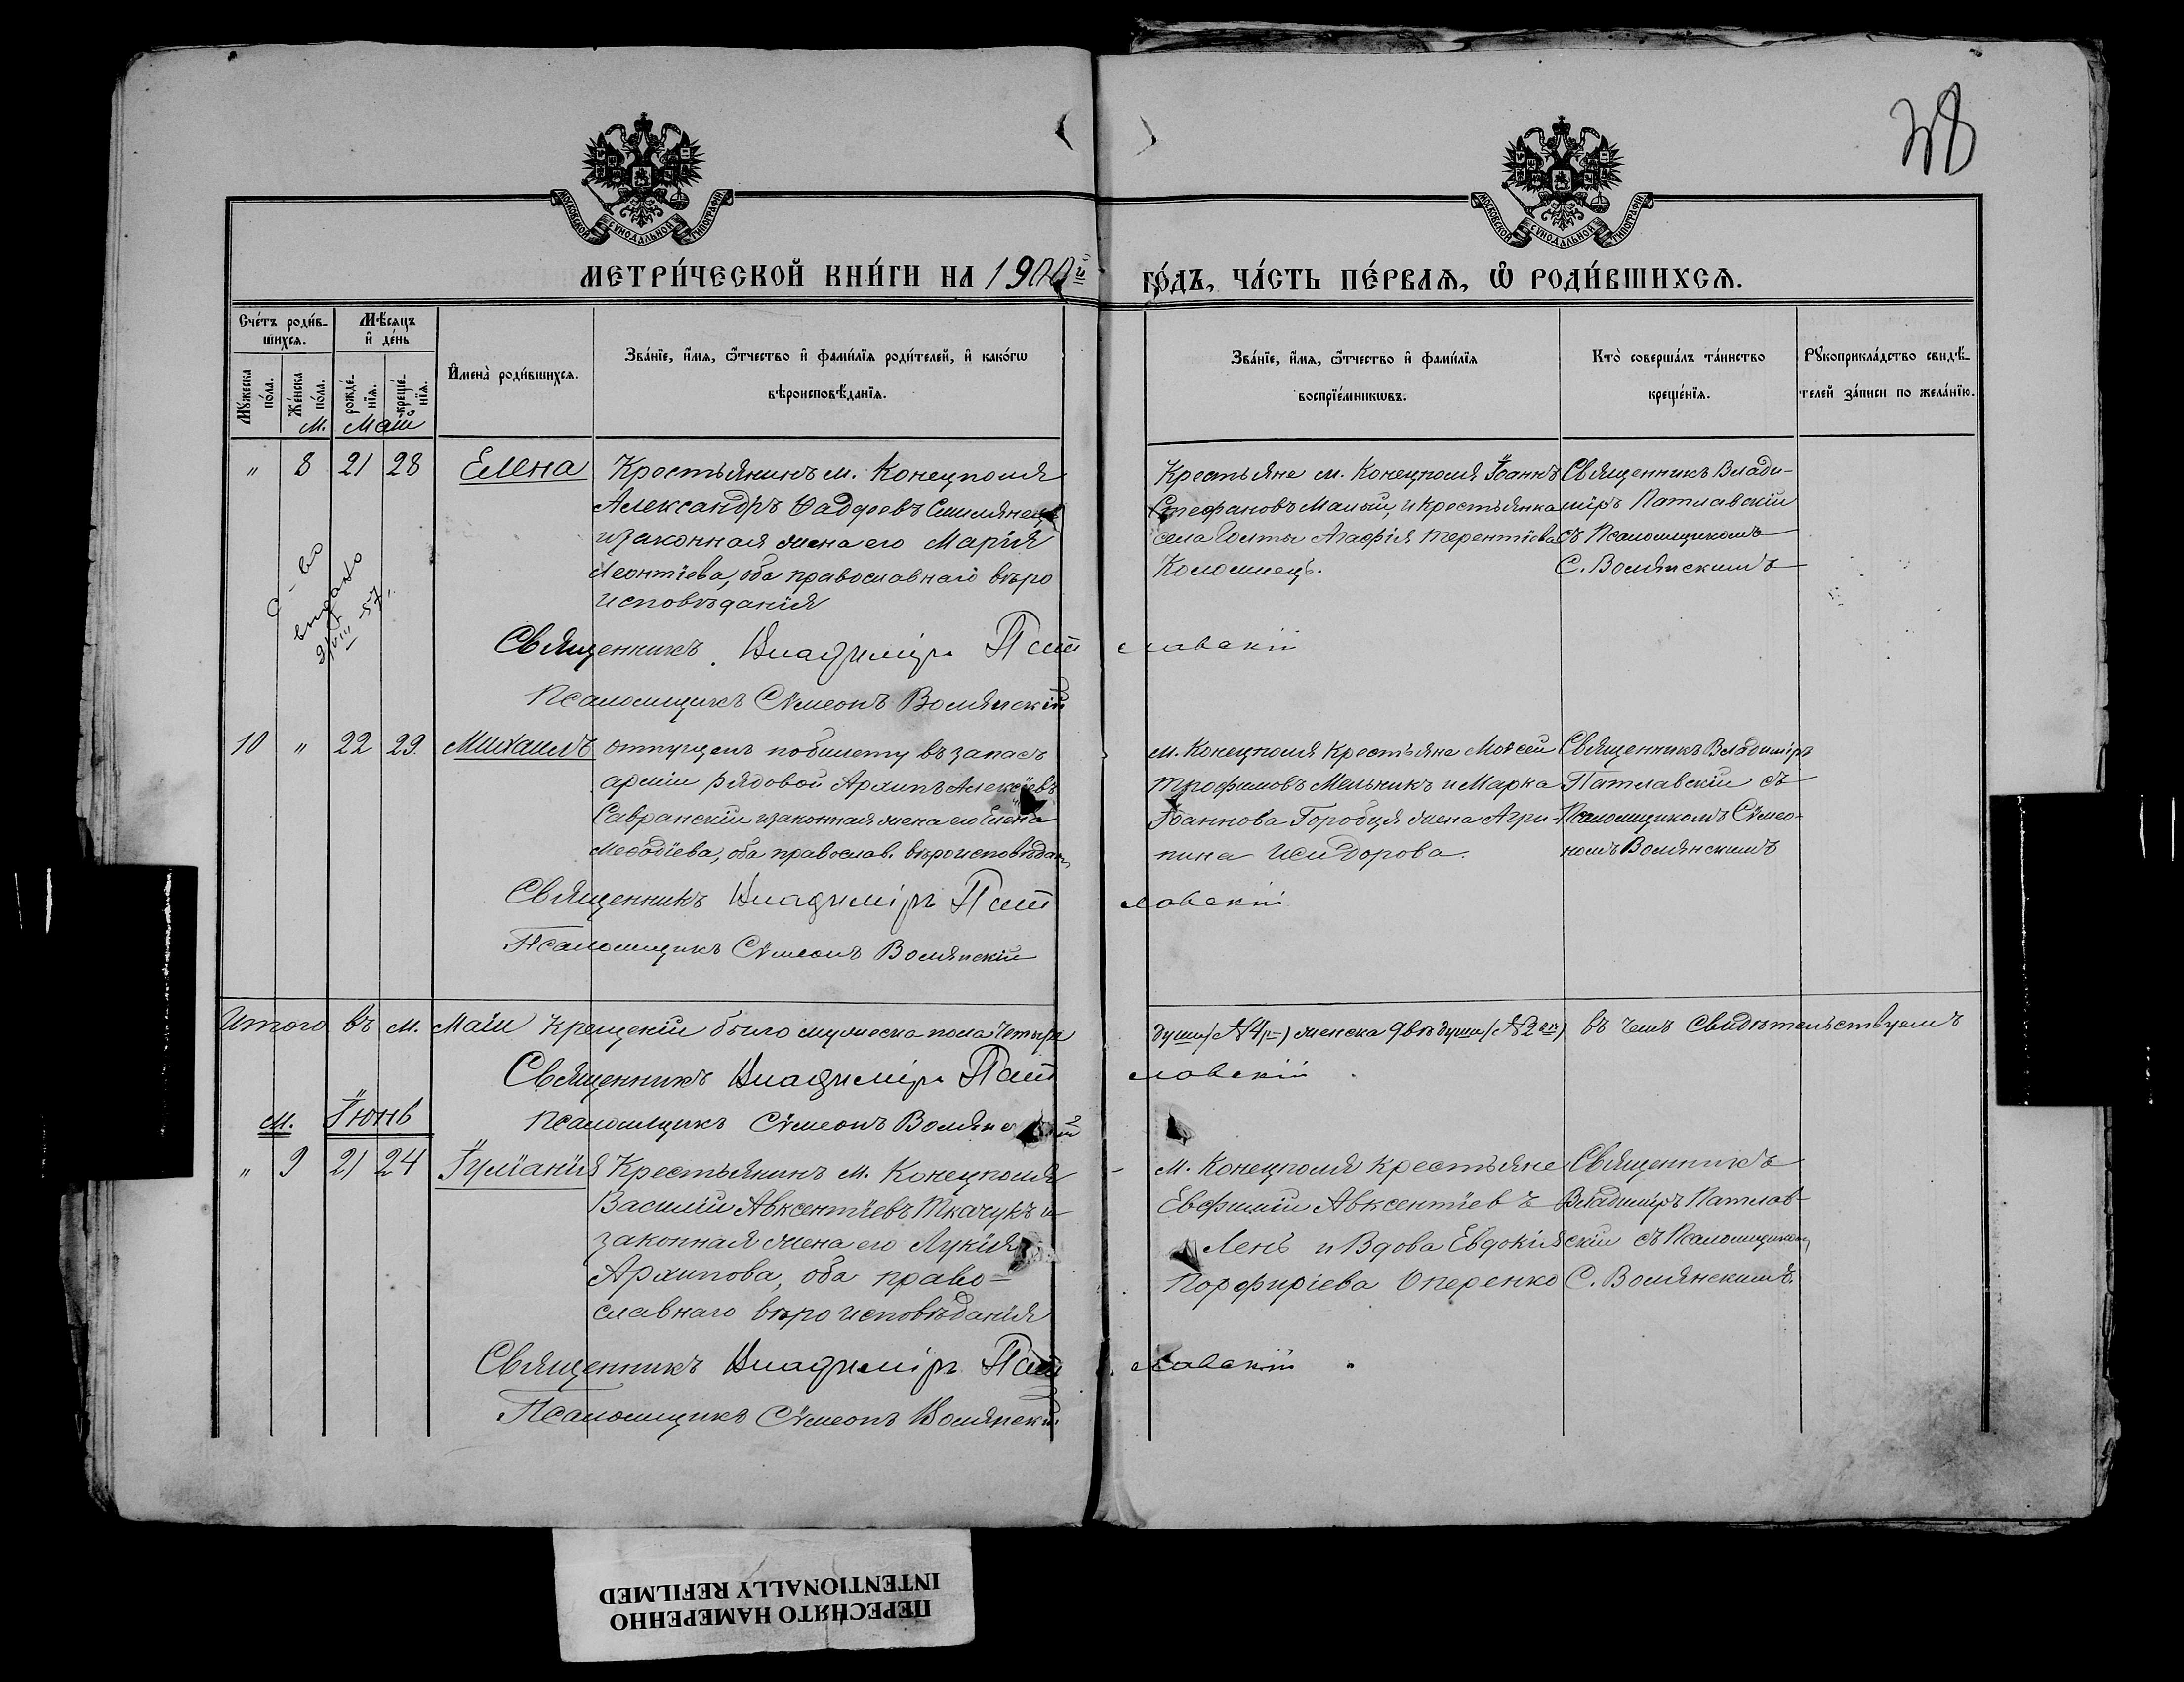 38
МОСКОВСКОЙ СѴНОДАЛЬНОЙ ТИПОГРАФІИ
МОСКОВСКОЙ СѴНОДАЛЬНОЙ ТИПОГРАФІИ
МЕТРИ́ЧЕСКОЙ КНИ́ГИ НА 1900й го́дъ, ча́сть пе́рваѧ, ѡ҆ роди́вшихсѧ.
Сче́тъ роди́вшихсѧ.
Мꙋ́жеска по́ла.
Же́нска по́ла.
Мѣ́сѧцъ и҆ де́нь
рожде́нїѧ.
креще́нїѧ.
И҆мена̀ роди́вшихсѧ.
Зва́нїе, и҆́мѧ, ѻ҆́тчество и҆ фами́лїѧ роди́телей, и҆ како́гѡ
вѣроисповѣ́данїѧ.
Зва́нїе, и҆́мѧ, ѻ҆́тчество и҆ фами́лїѧ
воспрїе́мникѡвъ.
Кто̀ соверша́лъ та́инство
креще́нїѧ.
Рꙋкоприкла́дство свидѣ́телей за́писи по жела́нїю.
М. Маій
" 8 21 28 Елена
Крестьянинъ м. Конецполя
Александръ Фаддеевъ Смилянецъ
и законная жена его Марія
Леонтіева, оба православнаго вѣро
исповѣданія
Крестьяне м. Конецполя Іоаннъ
Стефановъ Малый, и крестьянка
села Голты Агафія Терентіева
Коломиецъ.
Священникъ Влади-
міръ Патлавскій
съ Псаломщикомъ
С. Волянскимъ
С-во
выдано
VIII 57
Священникъ Владиміръ Патлавскій
Псаломщикъ Сѵмеонъ Волянскій
10 " 22 29 Михаилъ
отпущен. по билету въ запасъ
арміи рядовой Архипъ Алексіевъ
Савранскій и законная жена его Елена
Меѳодіева, оба православ. вѣроисповѣдан.
м. Конецполя крестьяне Моѵсей
Трофимовъ Мельникъ и Марка
Іоаннова Городця жена Агри-
пина Исидорова.
Священникъ Владиміръ
Патлавскій съ
Псаломщикомъ Сѵмео-
номъ Волянскимъ
Священникъ Владиміръ Патлавскій
Псаломщикъ Сѵмеонъ Волянскій
Итого въ м. Маіи крещеній было мужеска пола четыри души (№ 4) женска двѣ души (№ 2) въ чемъ свидѣтельствуемъ
Священникъ Владиміръ Патлавскій
Псаломщикъ Сѵмеонъ Волянскій
М. Іюнь
" 9 21 24 Іуліанія
Крестьянинъ м. Конецполя
Василій Авксентіевъ Ткачукъ и
законная жена его Лукія
Архипова, оба право=
славнаго вѣро исповѣданія
м. Конецполя крестьяне
Евфимій Авксентіевъ
Лень и Вдова Евдокія
Порфиріева Оперенко
Священникъ
Владиміръ Патлав-
скій съ Псаломщиком.
С. Волянскимъ.
Священникъ Владиміръ Патлавскій
Псаломщикъ Сѵмеонъ Волянскій
ПЕРЕСНЯТО НАМЕРЕННО
INTENTIONALLY REFILMED